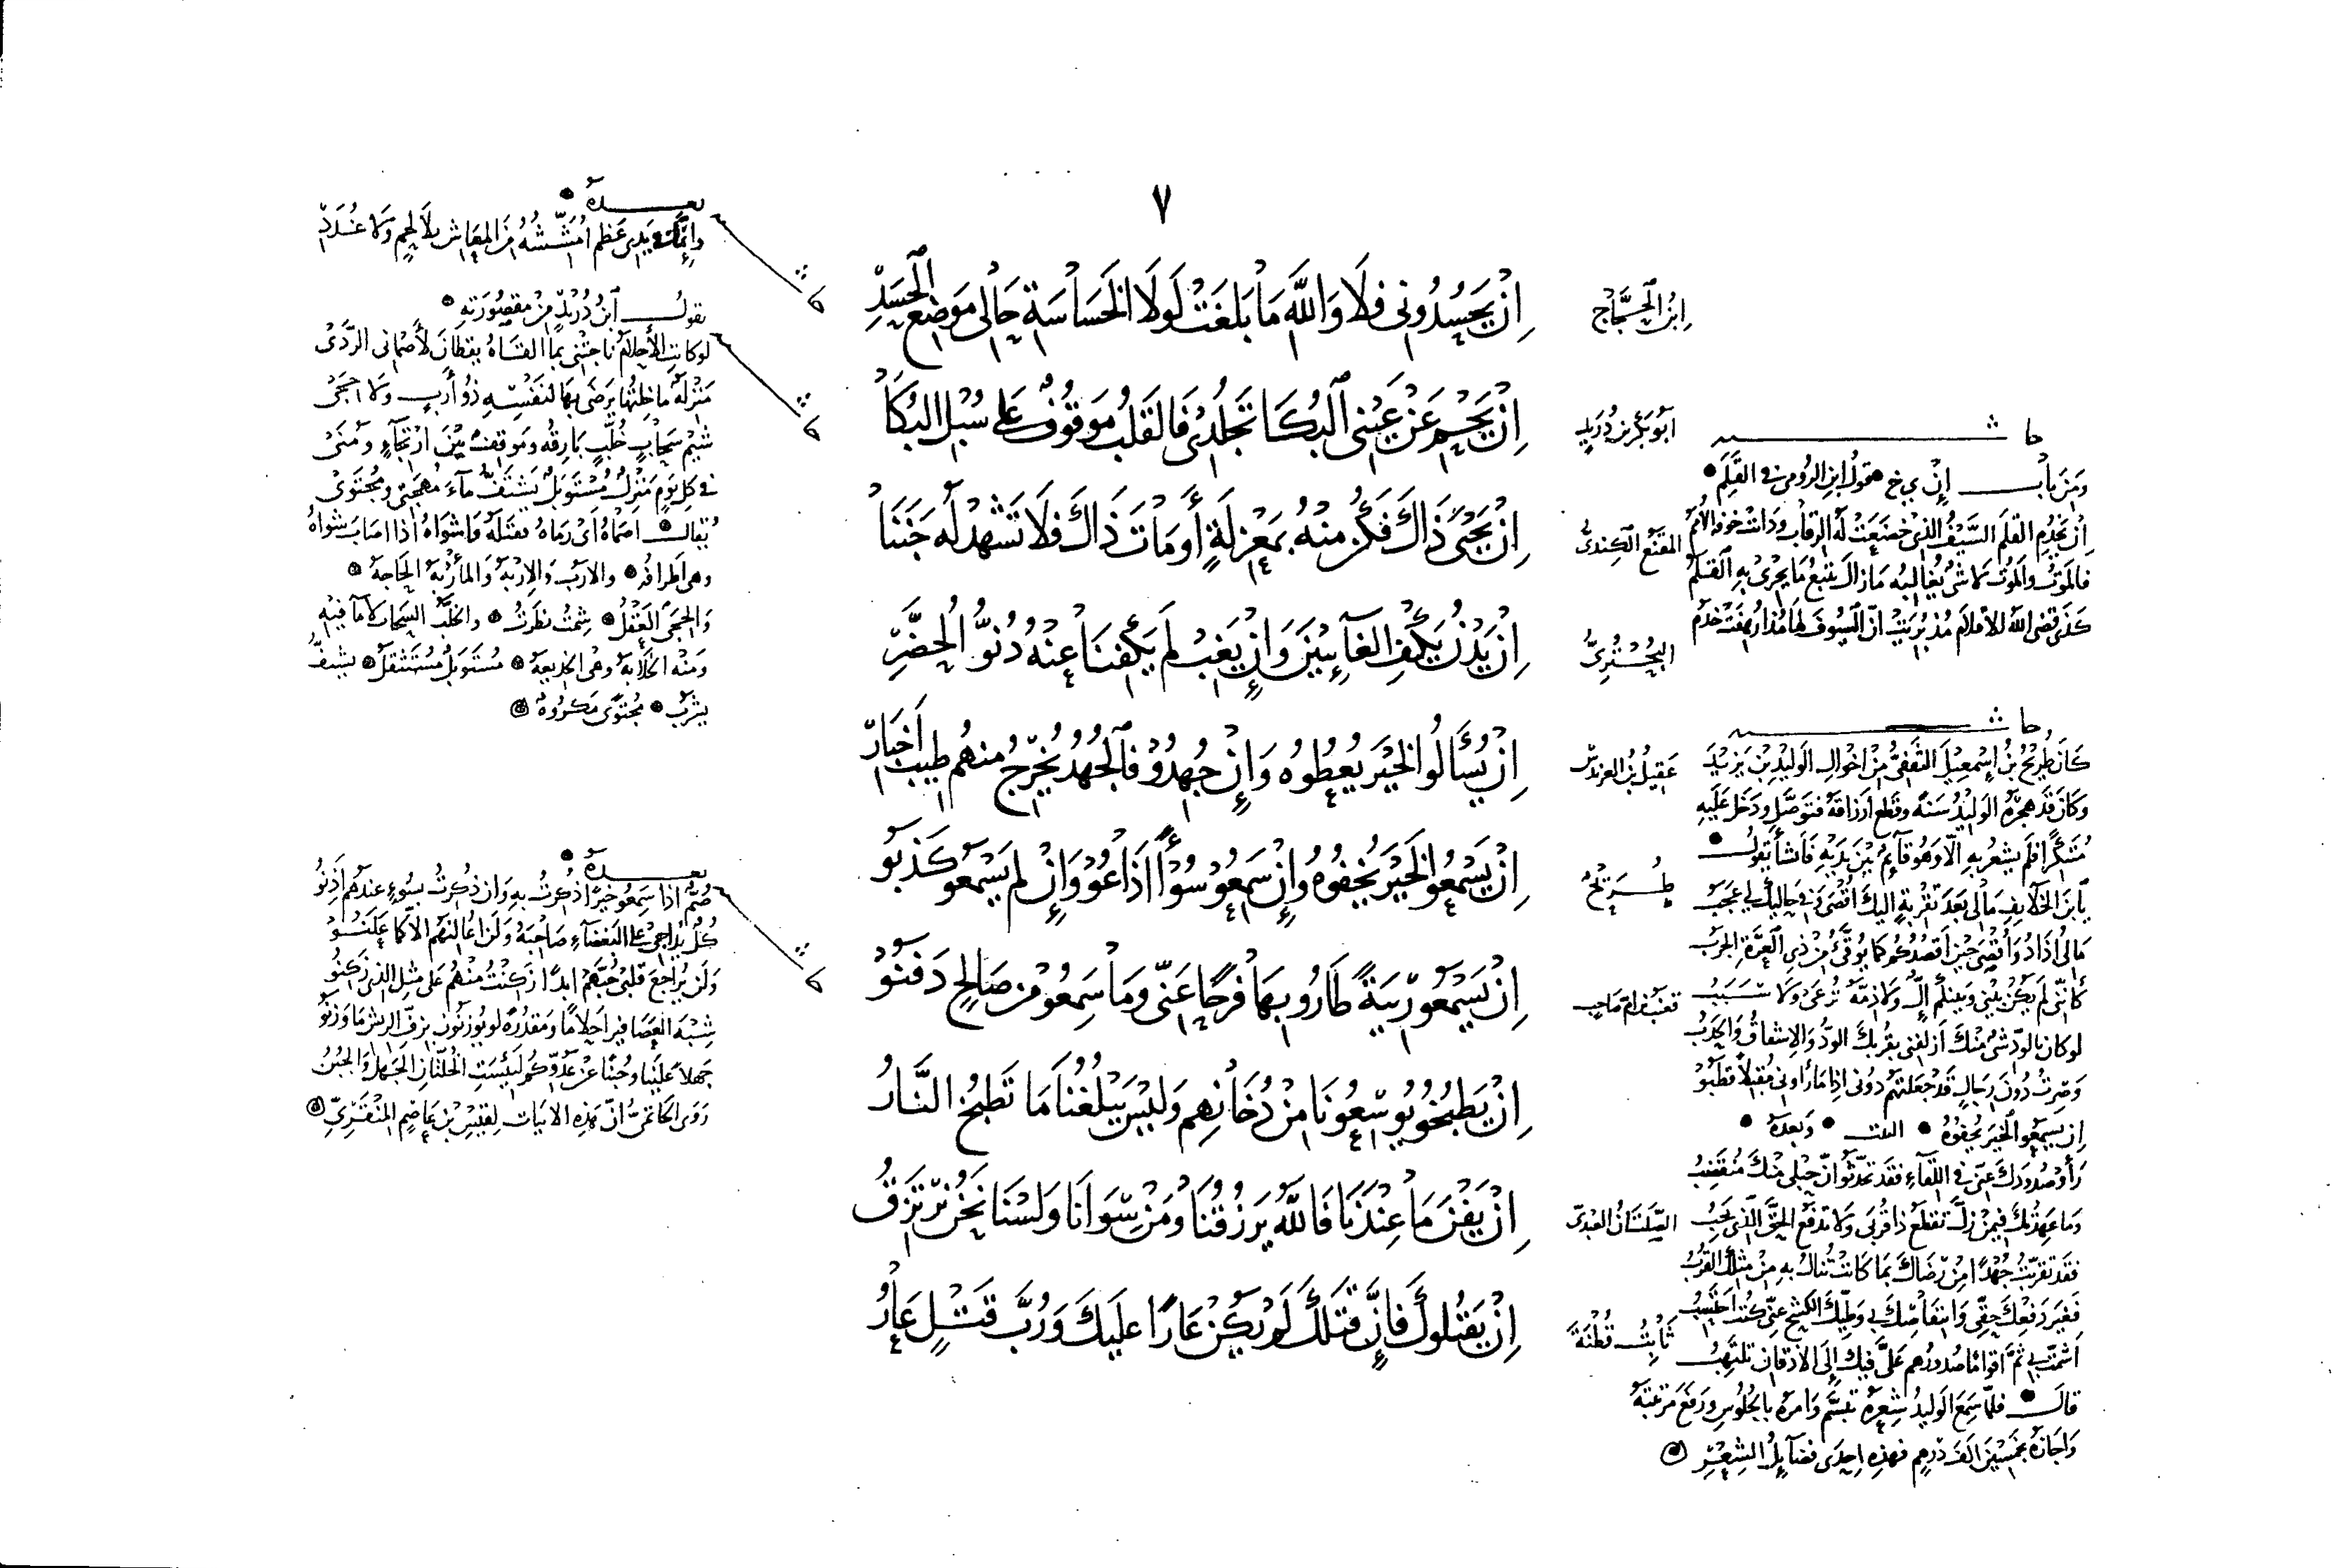 ٧
ابن الحجاج
إن يحسدوني فلا والله ما بلغت لولا الخساسة حالي موضع الحسد
أبو بكر بن دريد
إن يحم عن عيني البكا تجلدي فالقلب موقوف على سبل البكا
المقنع الكندي
إن يحي ذاك فكن منه بمعزلة أو مات ذاك فلا تشهد له جننا
البحتري
إن يدن يكف الغائبين وإن يغب لم يكفنا عنه دنو الحضر
عقيل بن العرندس
إن يسألوا الخير يعطوه وإن جهدوا فالجهد يخرج منهم طيب أخبار
طريح
إن يسمعوا الخير يخفوه وإن سمعوا سوءا أذاعوا وإن لم يسمعوا كذبوا
قعنب بن أم صاحب
إن يسمعوا ريبة طاروا بها فرحا عني وما سمعوا من صالح دفنوا
إن يطبخوا يوسعونا من دخانهم وليس يبلغنا ما تطبخ النار
الصلتان العبدي
إن يفن ما عندنا فالله يرزقنا ومن سوانا ولسنا نحن نرتزق
ثابت قطنة
إن يقتلوك فإن قتلك لم يكن عارا عليك ورب قتل عار
حاشية
ومن باب إن ي خ قول ابن الرومي في القلم
إن يخدم القلم السيف الذي خضعت له الرقاب ودانت خوفه الأمم
فالموت والموت لا شيء يغالبه ما زال يتبع ما يجري به القلم
كذى قضى الله للأقلام مذ بريت أن السيوف لها مذ أرهفت خدم
حاشية
كان طريح بن إسمعيل الثقفي من أخوال الوليد بن يزيد
وكان قد هجره الوليد سنة وقطع أرزاقه فتوصل ودخل عليه
متنكرا فلم يشعر به إلا وهو قائم بين يديه فأنشأ يقول
يا بن الخلائف ما لي بعد تقربة إليك أقصى وفي حاليك لي عجب
ما لي أذاد وأقصى حين أقصدكم كما يوقى من ذي العرة الجرب
كأنني لم يكن بيني وبينكم إل ولا ذمة ترعى ولا سبب
لو كان بالود شيء منك أزلفني بقربك الود والإشفاق والحدب
وصرت دون رجال قد جعلتهم دوني إذا ما رأوني مقبلا قطبوا
إن يسمعوا الخير يخفوه البيت وبعده
رأوا صدودك عني في اللقاء فقد تحدثوا أن حبلي منك منقضب
وما عهدتك فيمن زل تقطع ذا قربى ولا تدفع الحق الذي يجب
فقد تقربت جهدا من رضاك بما كانت تنال به من مثلك القرب
فغير دفعك حقي وانتقاصك بي وطيك الكشح عني كنت أحتسب
أشمت بي ثم أقواما صدورهم علي فيك إلى الأذقان تلتهب
قال فلما سمع الوليد شعره تبسم وأمره بالجلوس ورفع مرتبته
وأجازه بخمسين ألف درهم فهذه إحدى فضائل الشعر
بعده
وإنما في يدي عظم أمششه من المعاش بلا لحم ولا غدد
يقول ابن دريد من مقصورته
لو كانت الأحلام ناجتني بما ألقاه يقظان لأصماني الردى
منزلة ما خلتها يرضى بها لنفسه ذو أرب ولا حجى
شيم سحاب خلب بارقه وموقف بين ارتجاء ومنى
في كل يوم منزل مستوبل يشتف ماء مهجتي ومجتوى
يقال أصماه أي رماه فقتله فأشواه إذا أصاب شواه
وهي أطرافه والأرب والإربة والمأربة الحاجة
والحجى العقل شمت نظرت والخلب السحاب لا ما فيه
ومنه الخلابة وهي الخديعة مستوبل مستثقل يشتف
يشرب مجتوى مكروه
بعده
صم إذا سمعوا خيرا ذكرت به وإن ذكرت بسوء عندهم أذنوا
كل يداجي على البغضاء صاحبه ولن أعالنهم إلا كما علنوا
ولن يراجع قلبي حبهم أبدا زكنت منهم على مثل الذي زكنوا
شبه العصافير أحلاما ومقدرة لو يوزنون بزف الريش ما وزنوا
جهلا علينا وجبنا عن عدوكم لبئست الخلتان الجهل والجبن
روى الحاتمي أن هذه الأبيات لقيس بن عاصم المنقري